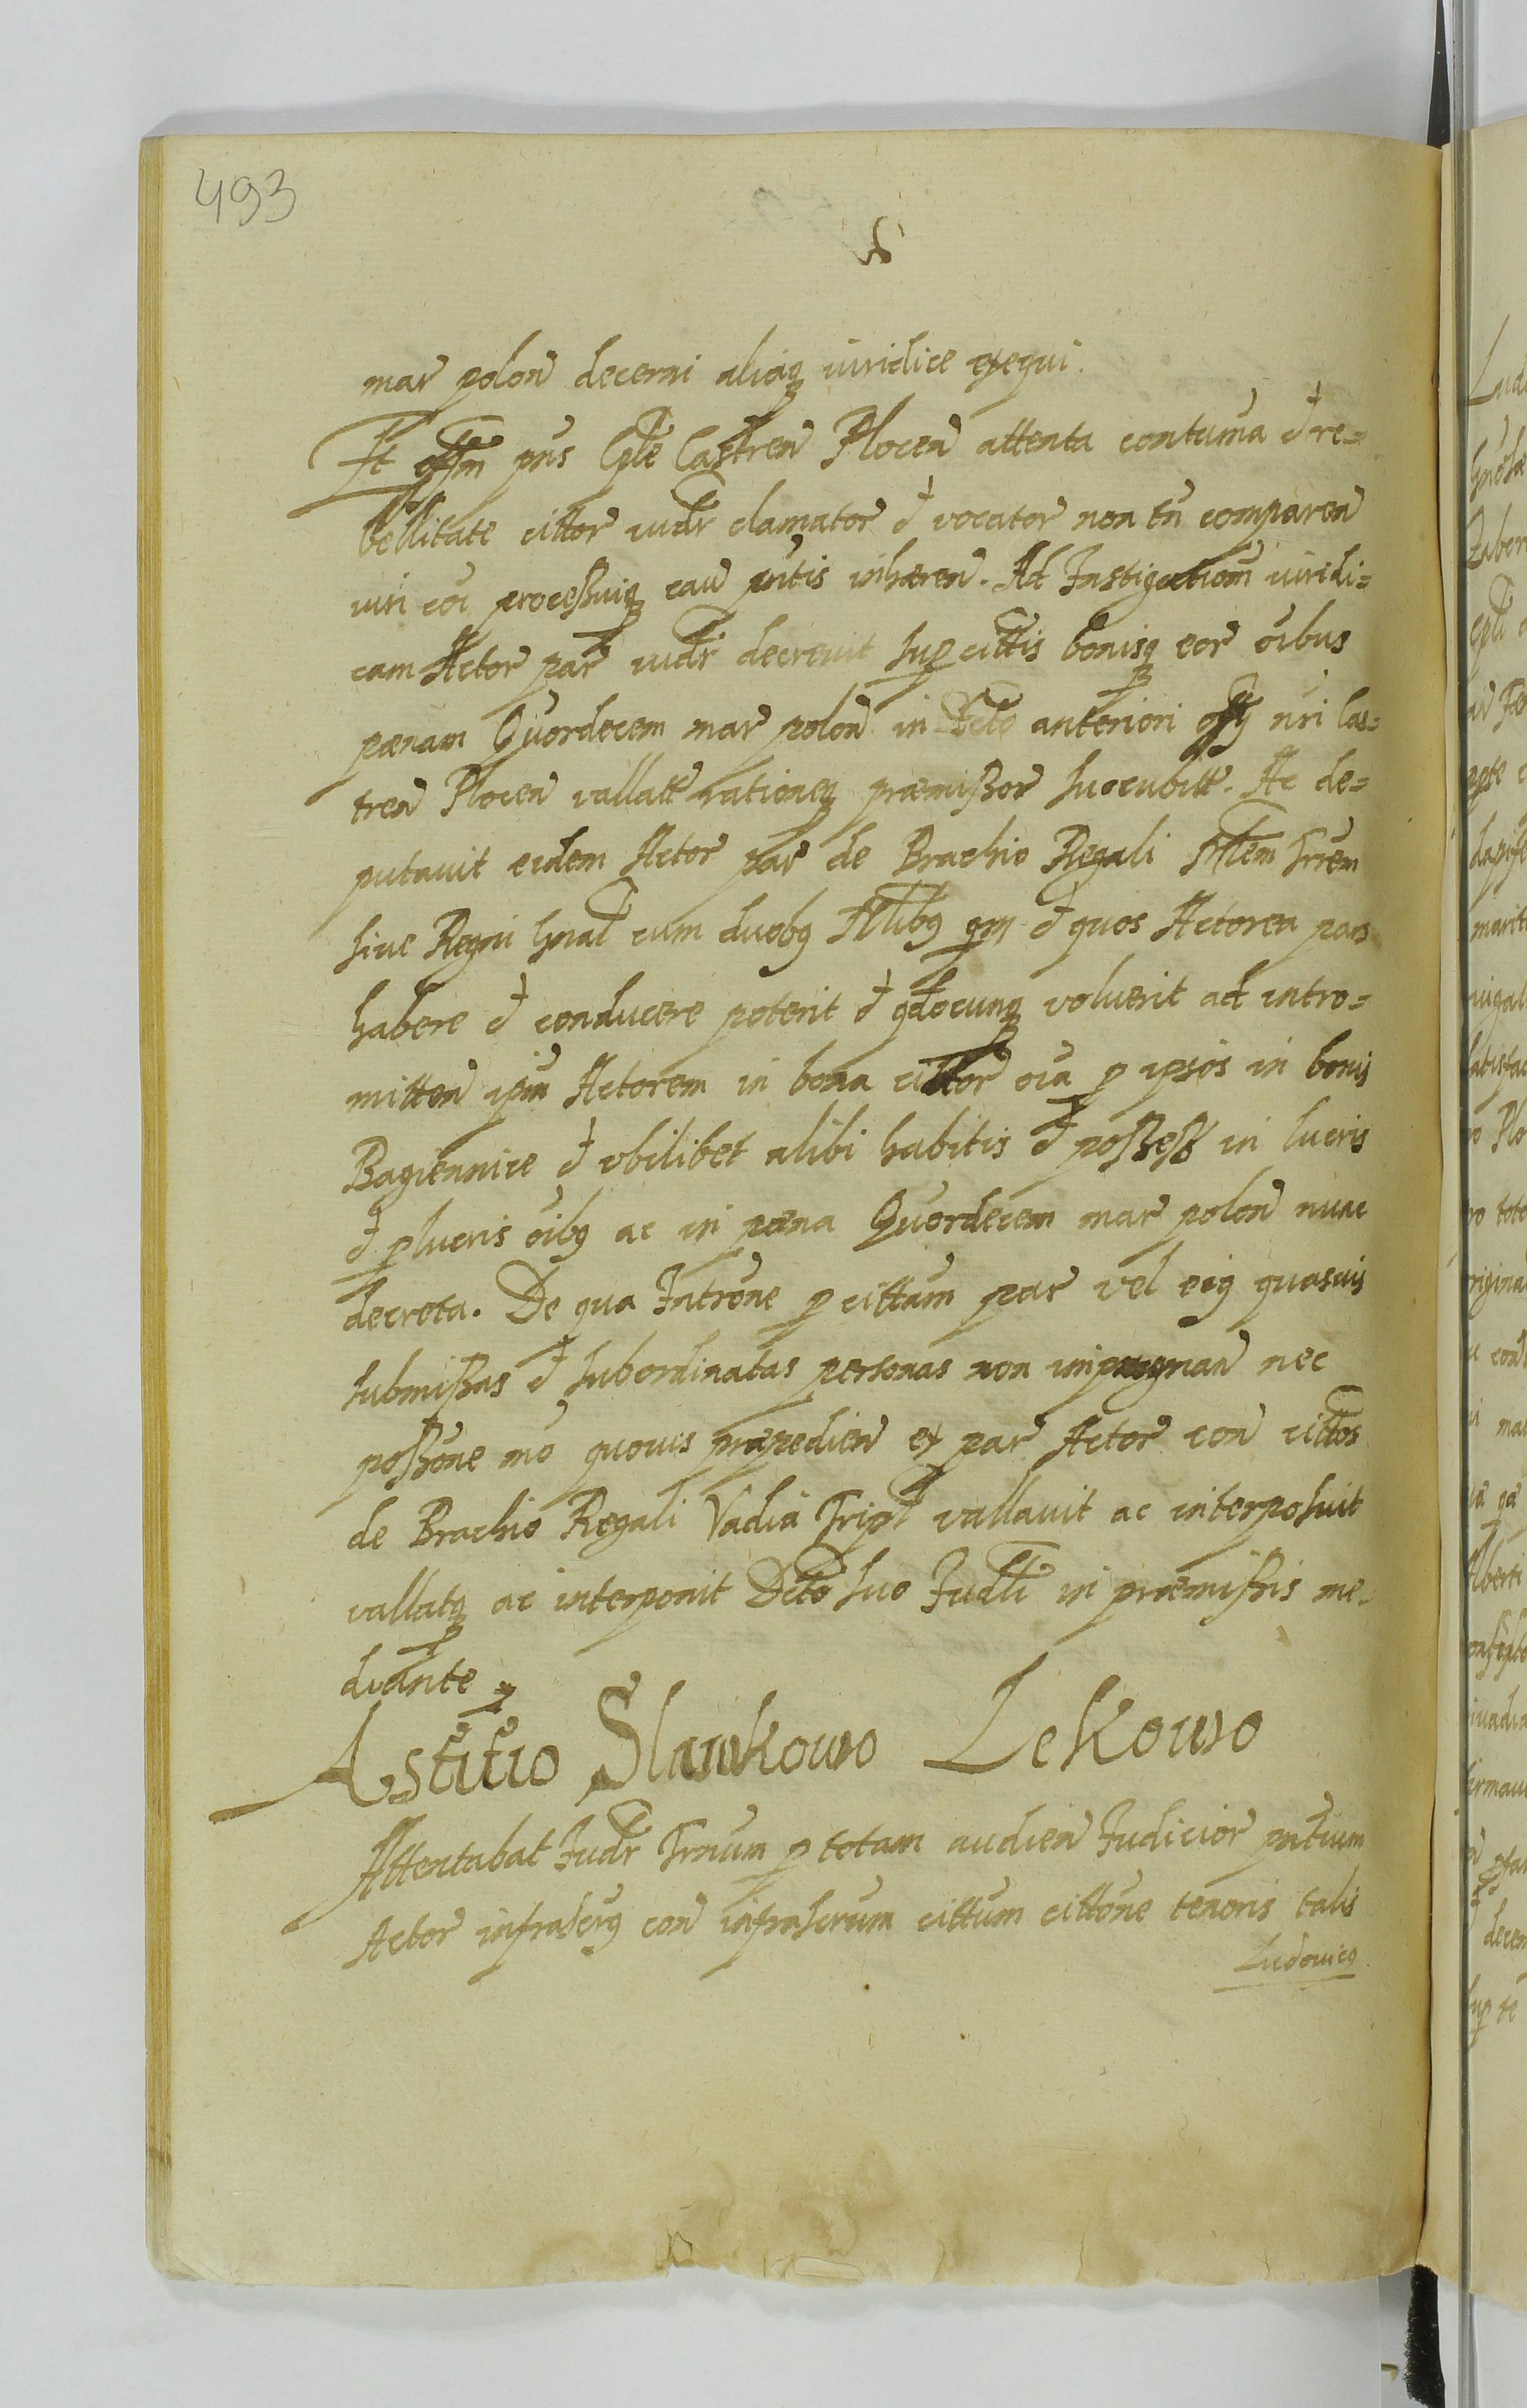 493
mar polon decerni aliaq iuridice exequi.
Et offm pns Cple Castren Plocen attenta contuma et re=
bellitate cittor iudr clamator et vocator non tn comparen
iuri coi processuiq cau pntis inhæren. Ad Instigationem iuridi=
cam Actor par iudr decrevit sup cittis bonisq eor oibus
pænam Qvordecem mar polon in Acto anteriori offy nri Cas=
tren Plocen vallatt rationeq præmissor succubitt. Ac de=
putavit eidem Actor par de Brachio Regali Mlem Trrem
sive Regni Gnal cum duobq Mlibq qm et quos Actorea pars
habere et conducere poterit et qdocunq voluerit ad intro=
mitten ipm Actorem in bona cittor oia p ipsos in bonis
Bagiennice et vbilibet alibi habitis et possess in lucris
et plucris oibq ac in pæna Qvordecem mar polon nunc
decreta. De qua Introne p cittam par vel eiq quasvis
submissas et subordinatas personas non impugnan nec
possone mo quovis præpedien ex par Actor con cittos
de Brachio Regali Vadia Tripl vallavit ac interposuit
vallatq ac interponit Dcto suo Judli in præmissis me=
diante
Astitio Slawkowo Lekowo
Attentabat Judr Trnum p totam audien Judicior pntium
Actor infrascrq con infrascrum cittum cittone tenoris talis
Ludovicq